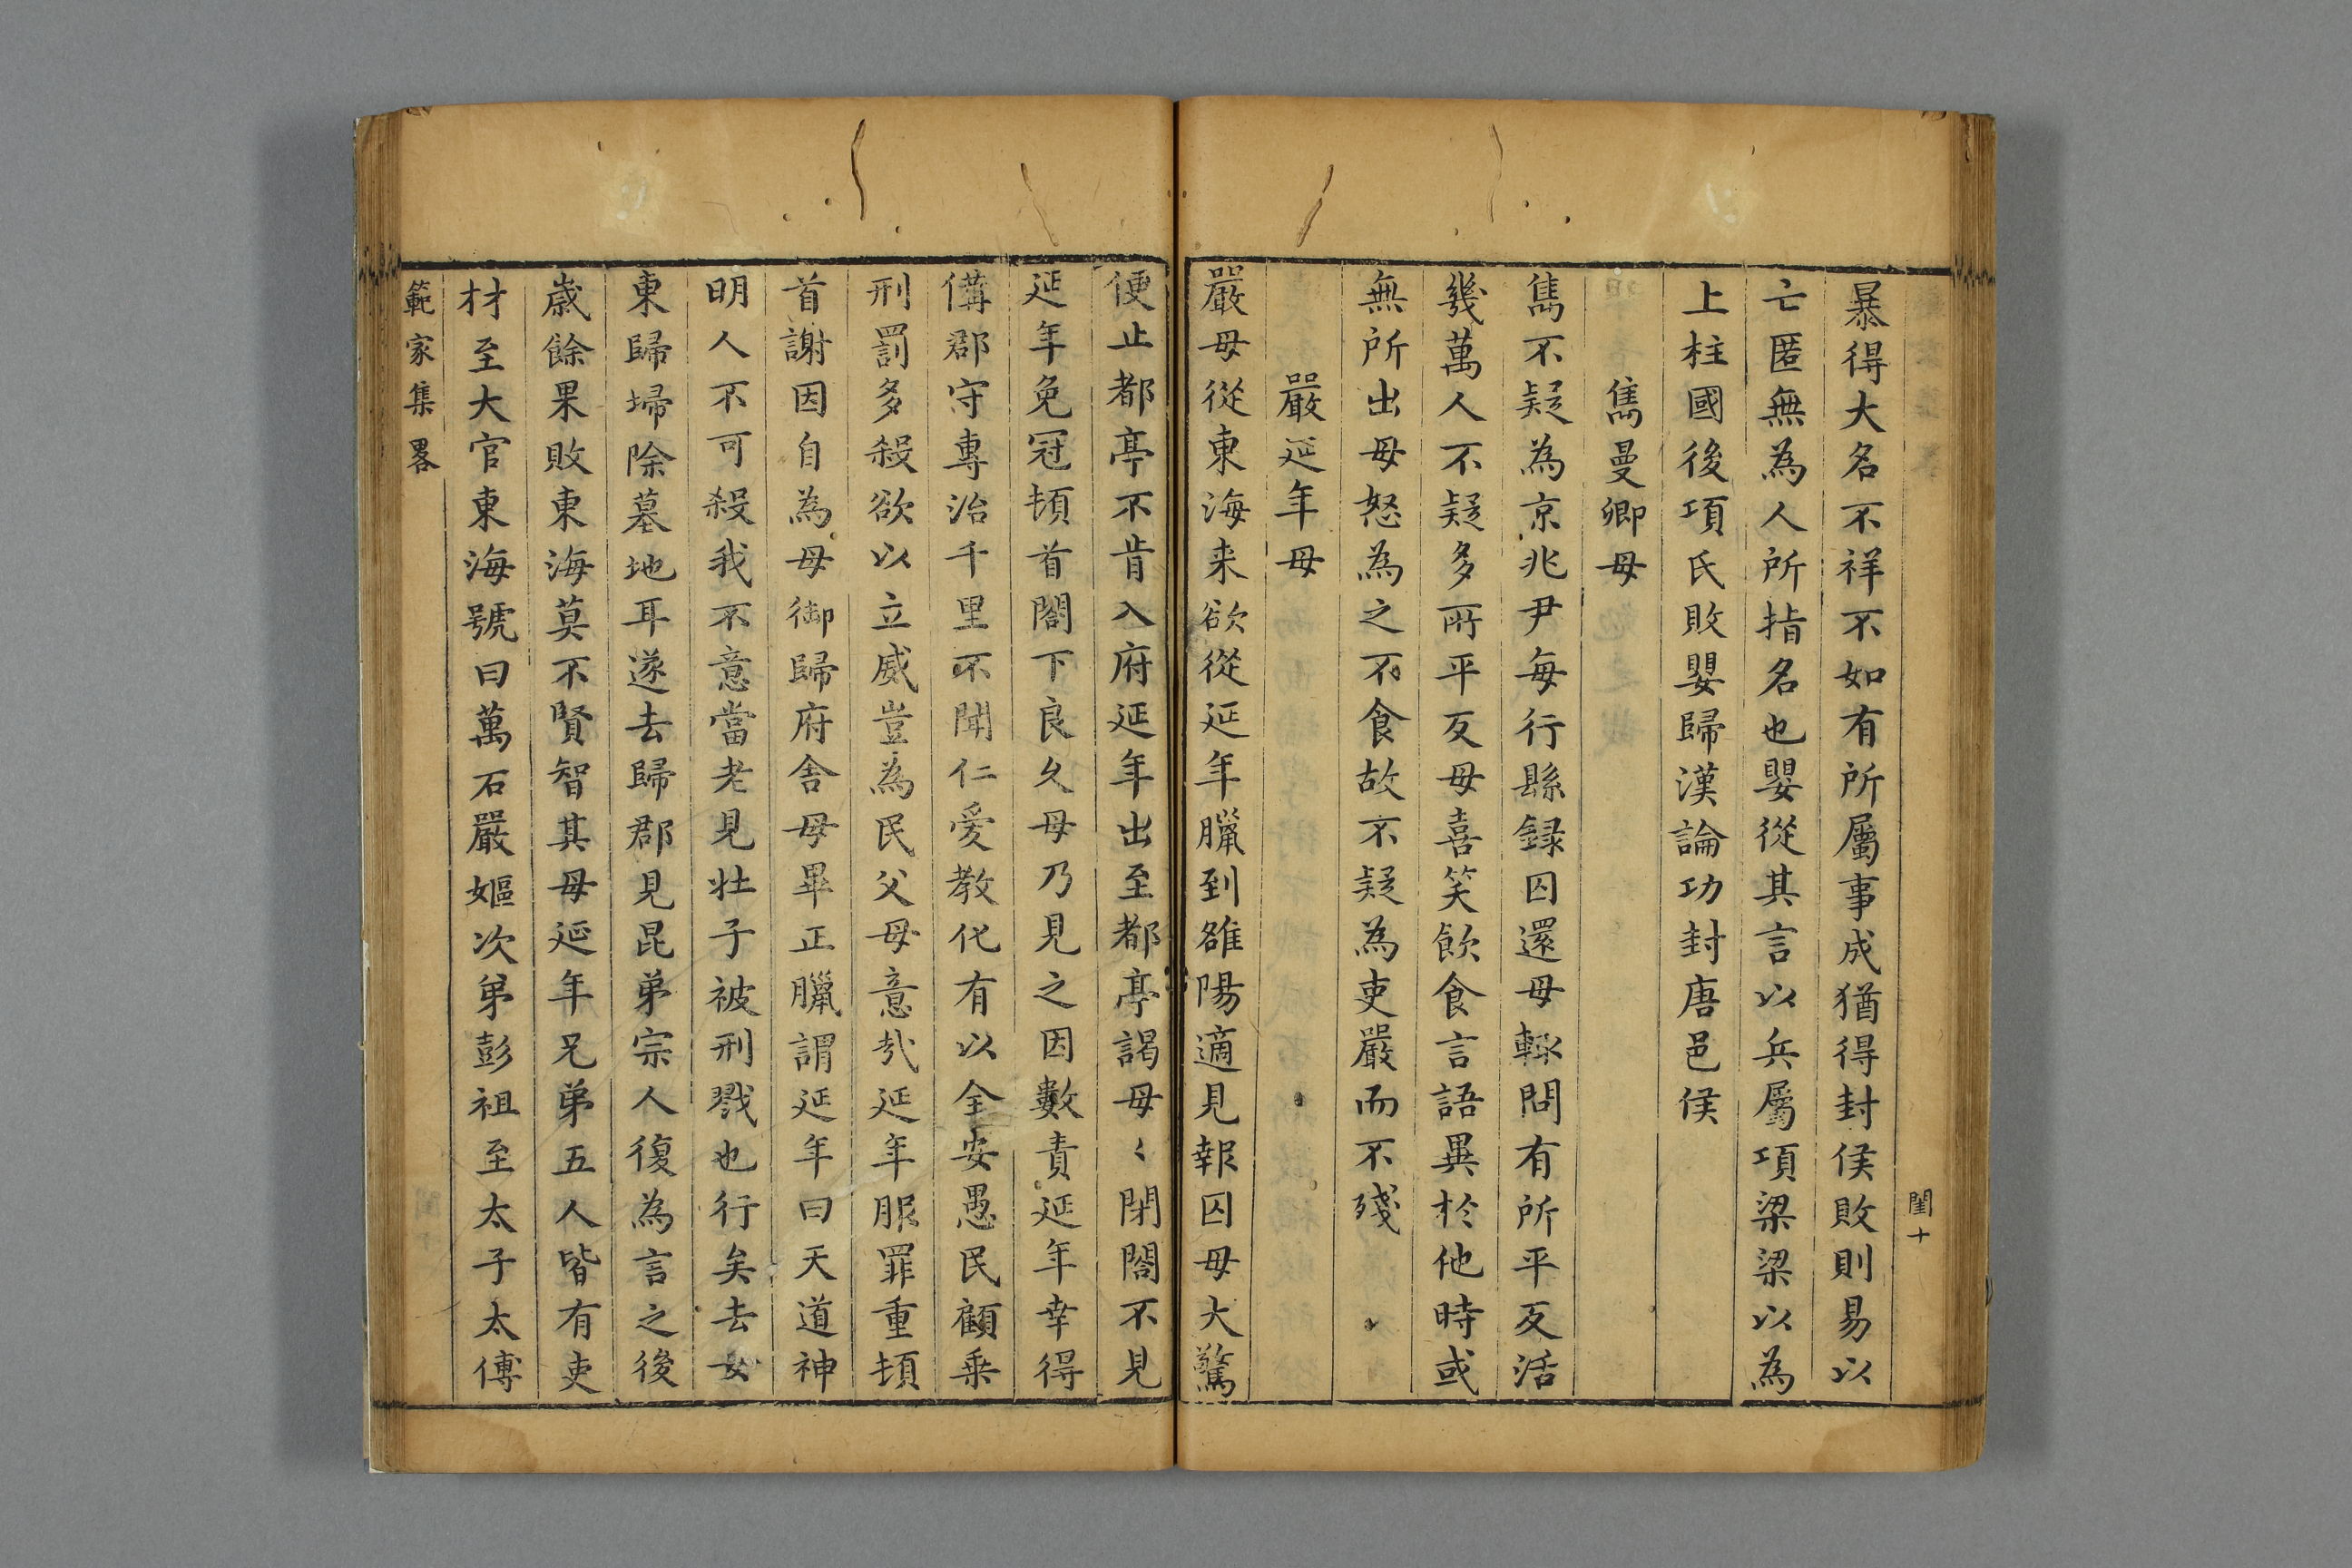 暴得大名不祥不如有所屬事成猶得封侯敗則易以
亡匿無為人所指名也嬰從其言以兵屬項梁梁以為
上柱國後項氏敗嬰歸漢論功封唐邑侯
雋曼卿母
雋不疑為京兆尹每行縣録囚還母輙問有所平反活
幾萬人不疑多所平反母喜笑飲食言語異於他時或
無所出母怒為之不食故不疑為吏嚴而不殘
嚴延年母
嚴母從東海来欲從延年臘到雒陽適見報囚母大驚
便止都亭不肯入府延年出至都亭謁母〻閉閤不見
延年免冠頓首閤下良久母乃見之因數責延年幸得
備郡守專治千里不聞仁愛教化有以全安愚民顧乗
刑罰多殺欲以立威豈為民父母意㢤延年服罪重頓
首謝因自為母御歸府舎母畢正臘謂延年曰天道神
明人不可殺我不意當老見壮子被刑戮也行矣去女
東歸埽除墓地耳遂去歸郡見昆弟宗人復為言之後
歳餘果敗東海莫不賢智其母延年兄弟五人皆有吏
材至大官東海號曰萬石嚴嫗次弟彭祖至太子太傅
範家集畧
閨十